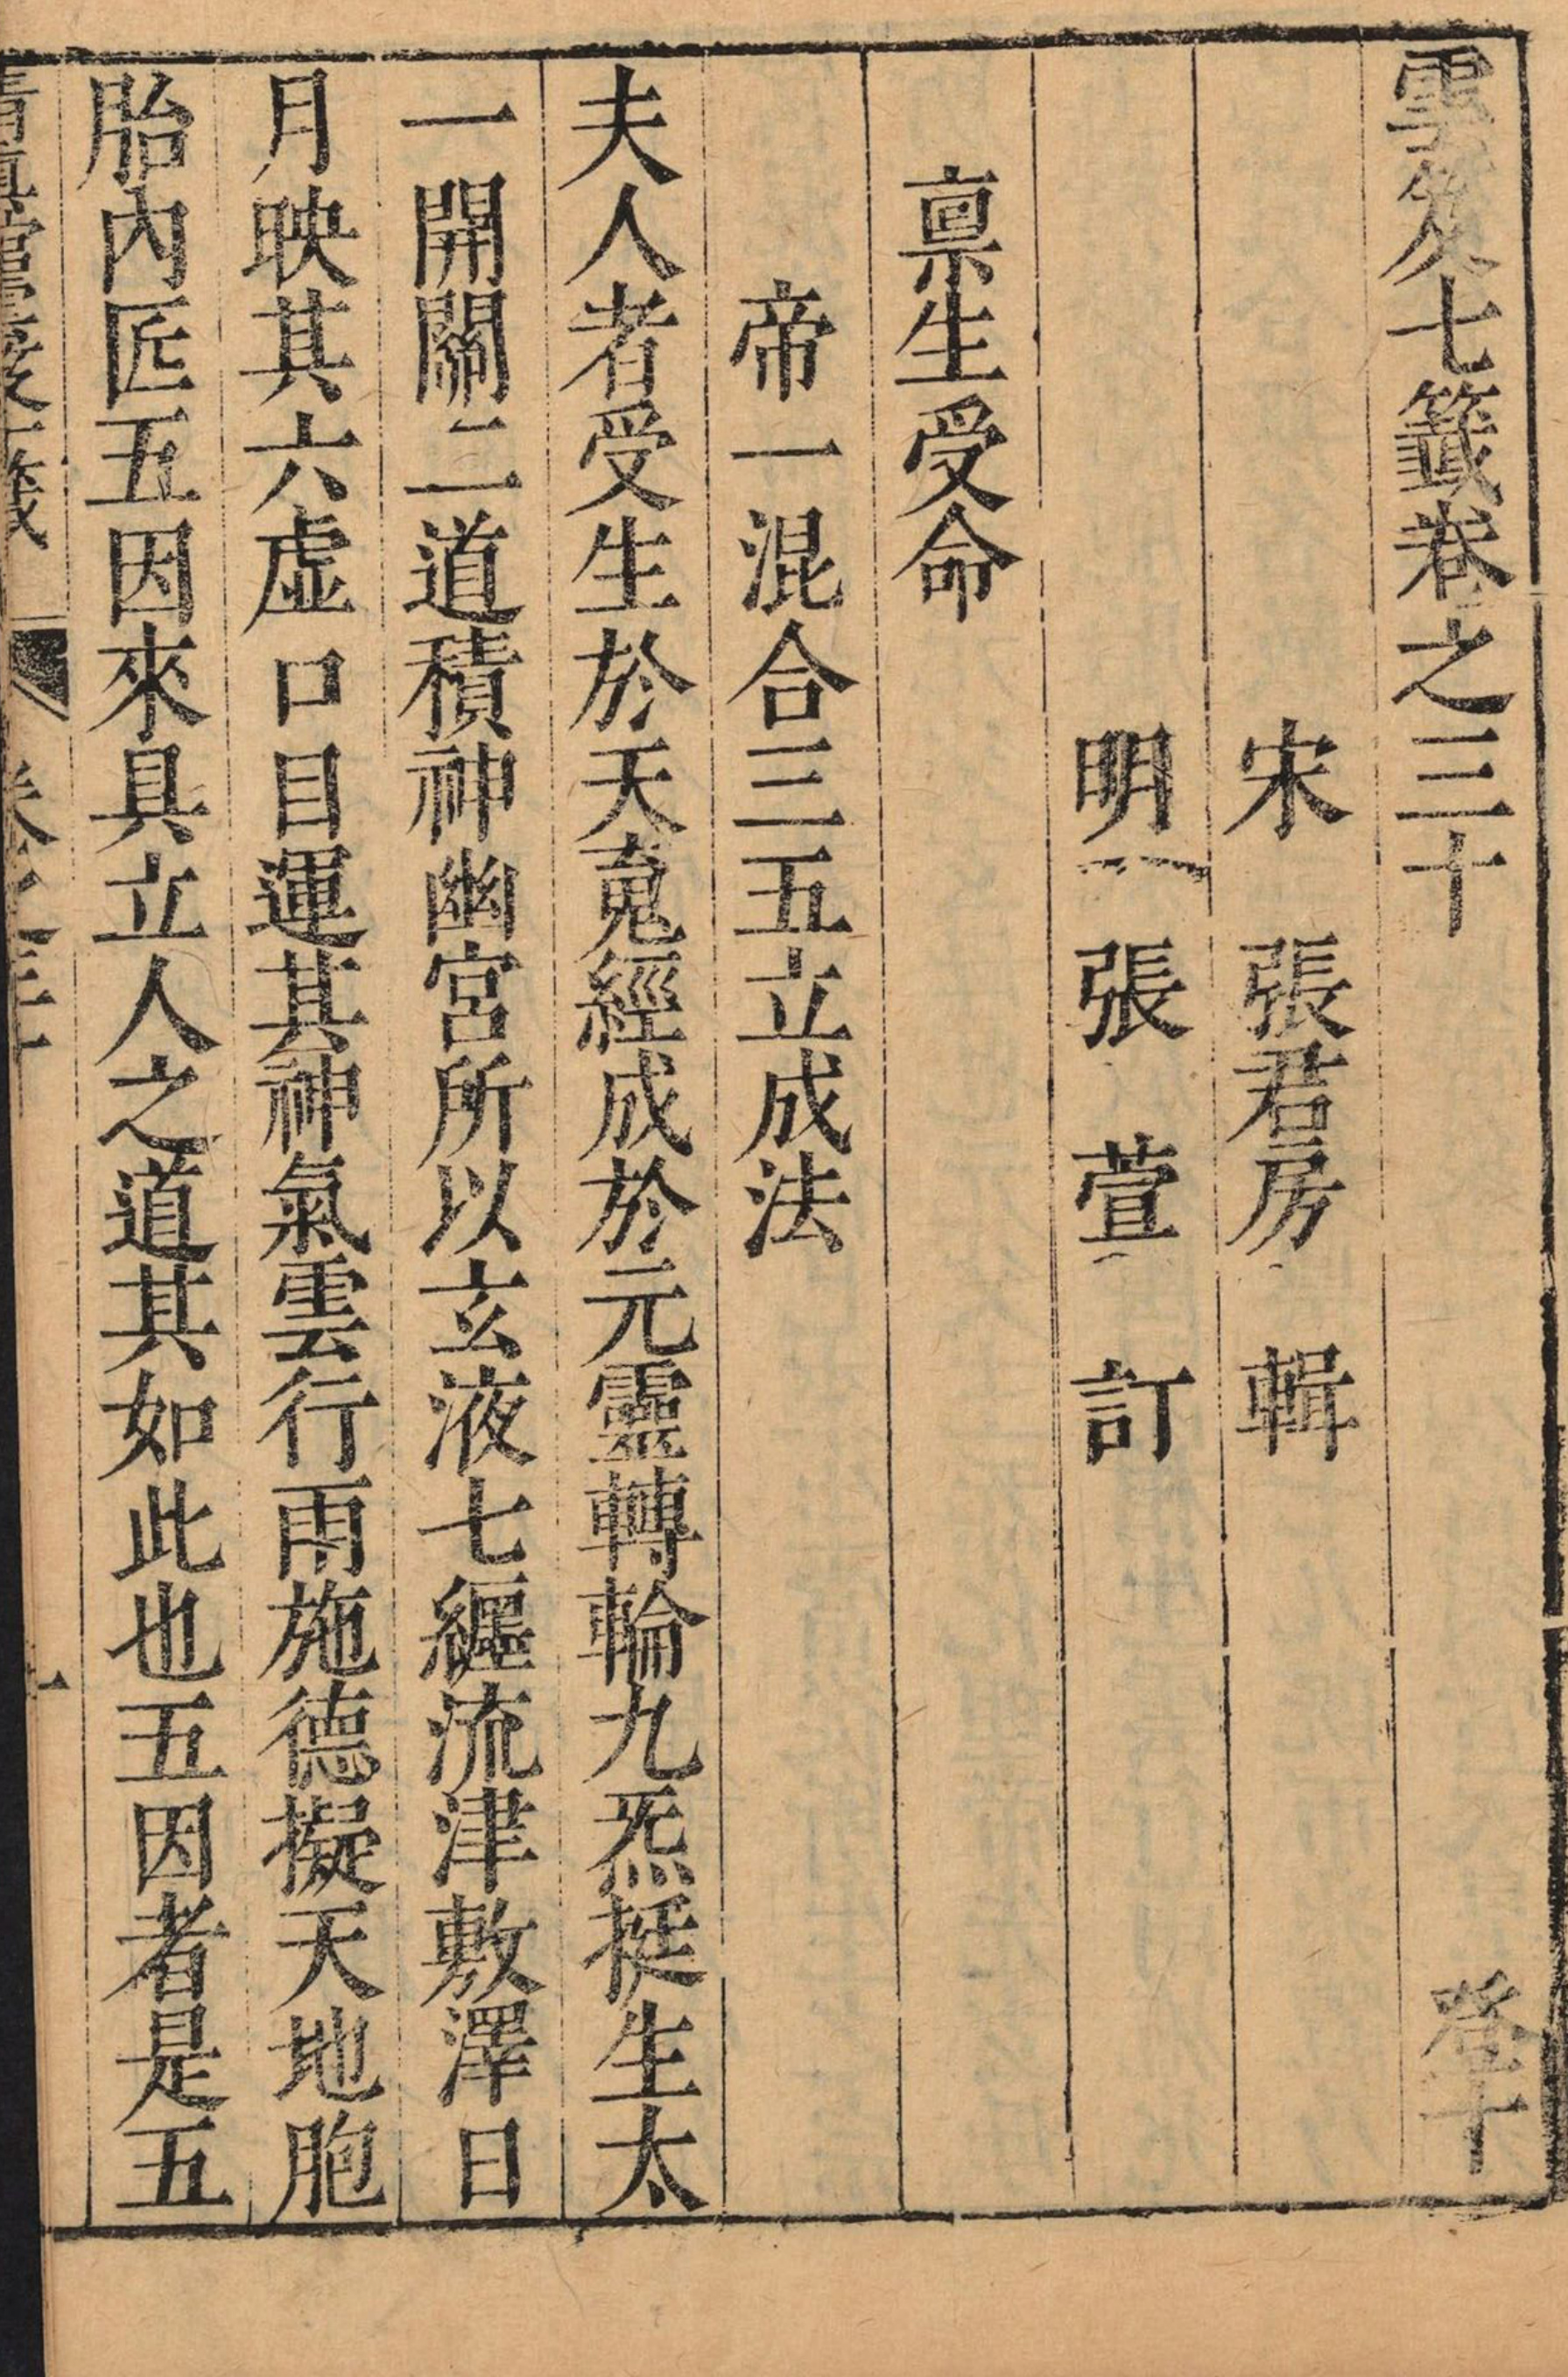 雲笈七籤卷之三十 發十
宋 張君房 輯
明 張萱 訂
禀生受命
帝一混合三五立成法
夫人者受生於天䰟經成於元靈轉輪九炁挺生太
一開關二道積神幽宮所以玄液七纏流津敷澤日
月映其六虚口目運其神氣雲行雨施德擬天地胞
胎內匠五因來具立人之道其如此也五因者是五
清真館雲笈七籤 卷之三十 一